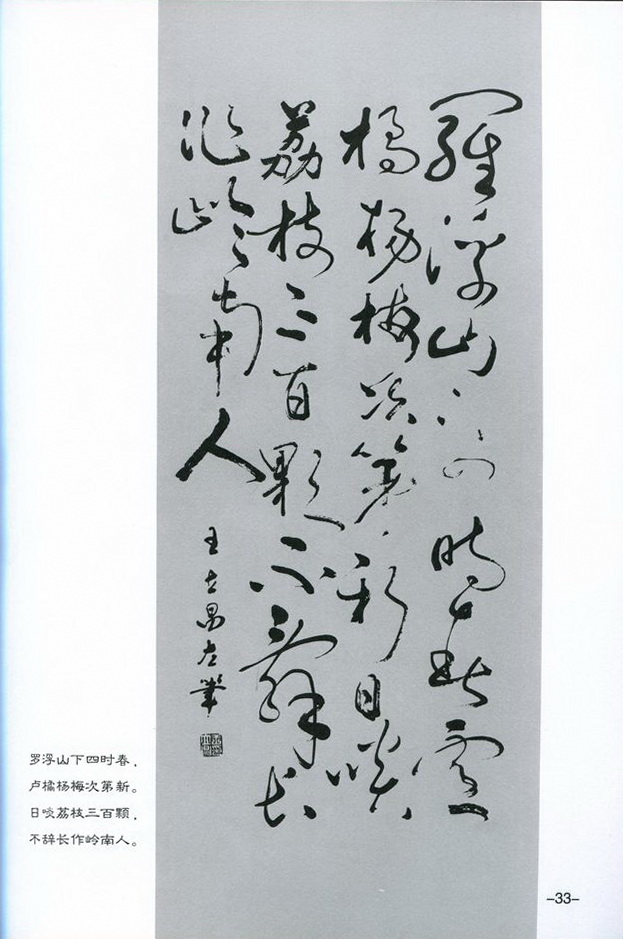 羅浮山下四時春盧
橘楊梅次第新日啖
荔枝三百顆不辭長
作嶺南人
王立昌左筆
罗浮山下四时春，
卢橘杨梅次第新。
日啖荔枝三百颗，
不辞长作岭南人。
-33-